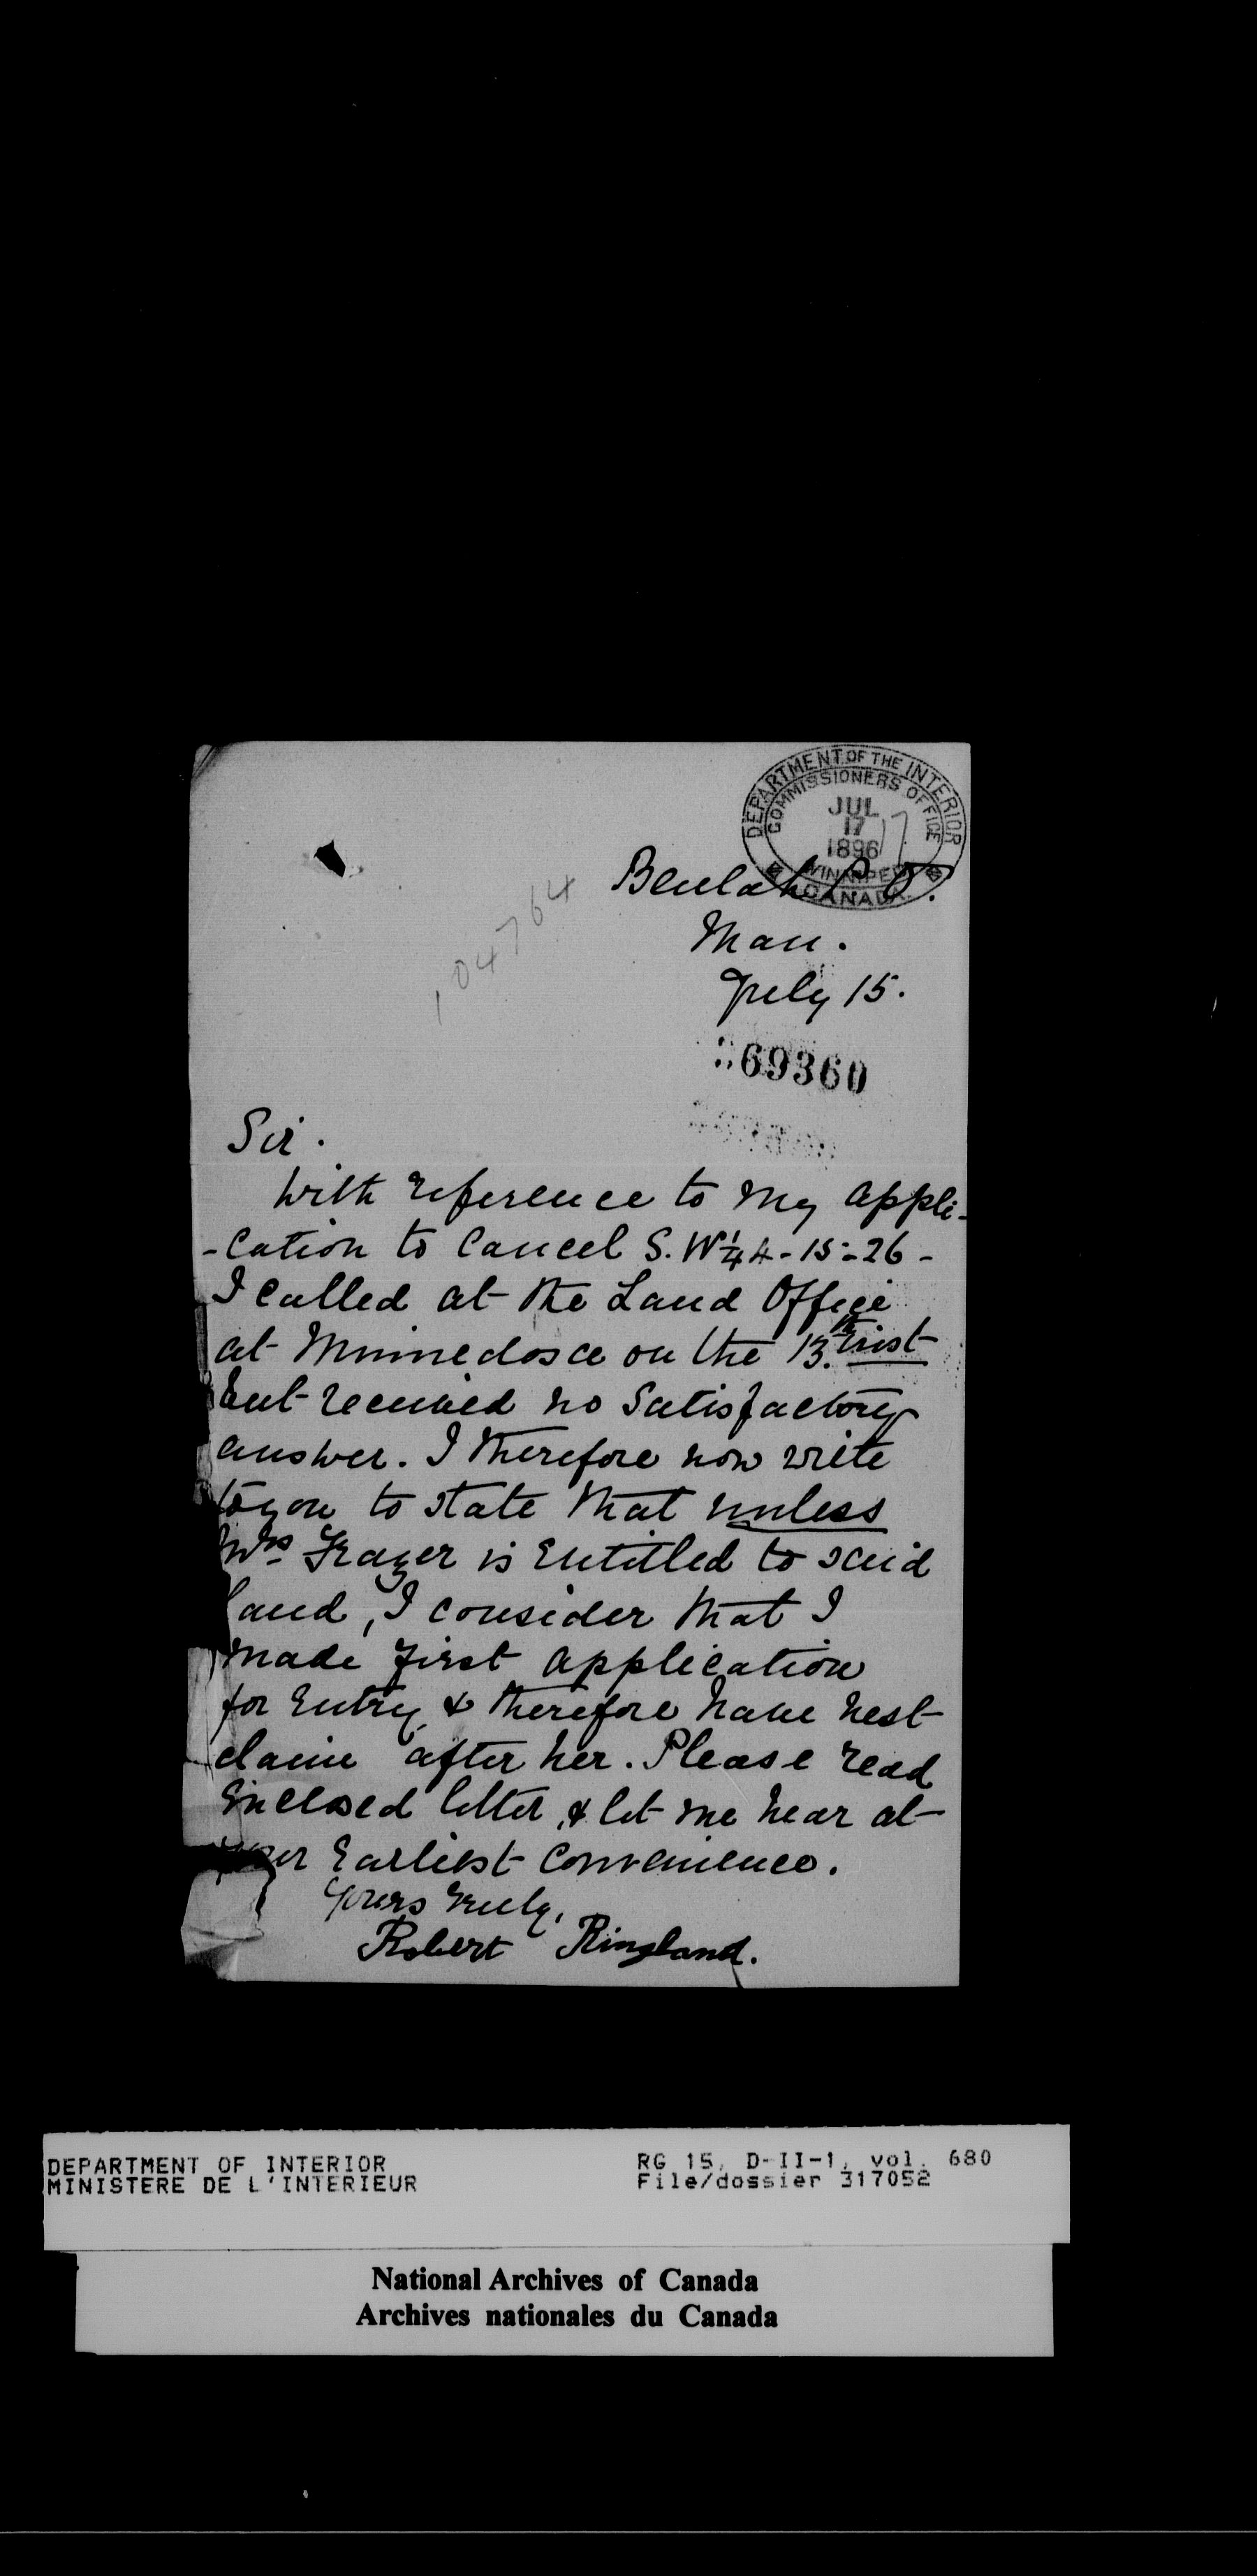 DEPARTMENT OF THE INTERIOR
COMMISSIONERS OFFICE
JUL
17
1896
WINNIPEG
CANADA
Beulah P.O.
Man.
July 15.
104764
69360
Sir.
With reference to my appli-
-cation to cancel S.W¼ 4-15-26-
I called at the Land Office
at Minnedosa on the 13.th inst
but received no satisfactory
answer. I therefore now write
to you to state that unless
Mrs Frazer is entitled to said
land, I consider that I
made first application
for entry, & therefore have next
claim after her. Please read
enclosed letter, & let me hear at
your Earliest convenience.
Yours truly,
Robert Ringland.
DEPARTMENT OF INTERIOR
MINISTERE DE L'INTERIEUR
RG 15, D-II-1, vol. 680
File/dossier 317052
National Archives of Canada
Archives nationales du Canada